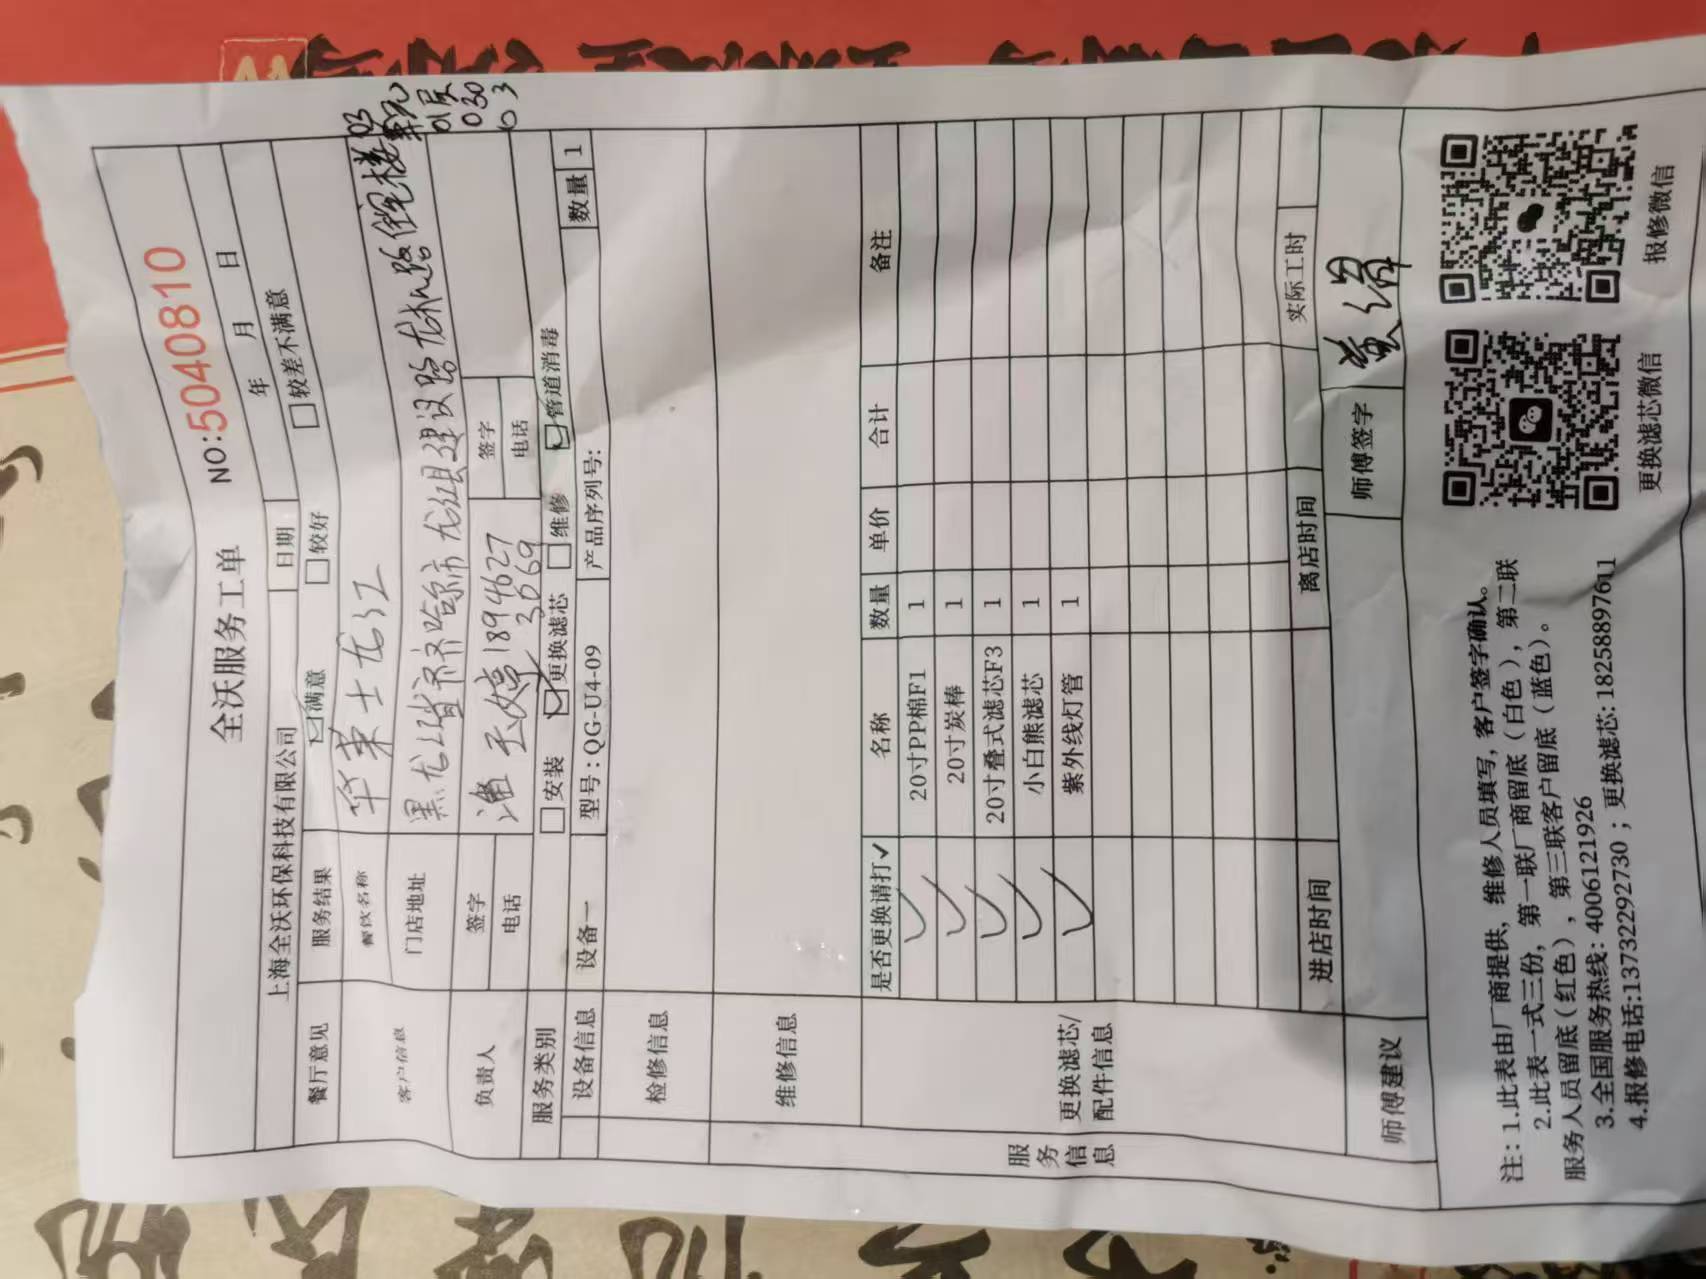 全沃服务工单
NO:5040810
上海全沃环保科技有限公司 日期 年 月 日
餐厅意见 服务结果 ☑满意 □较好 □较差不满意
客户信息 餐饮名称 华莱士龙江
门店地址 黑龙江省齐齐哈尔市龙江县建设路龙机路 楼03
单元
01层
030
03
负责人 签字 潘玉婷 签字
电话 18946273069 电话
服务类别 □安装 ☑更换滤芯 □维修 ☑管道消毒
设备信息 设备一 型号:QG-U4-09 产品序列号: 数量 1
服务信息
检修信息
维修信息
更换滤芯/配件信息
是否更换请打✓ 名称 数量 单价 合计 备注
✓ 20寸PP棉F1 1
✓ 20寸炭棒 1
✓ 20寸叠式滤芯F3 1
✓ 小白熊滤芯 1
✓ 紫外线灯管 1
进店时间 离店时间 实际工时
师傅建议 师傅签字
注:1.此表由厂商提供,维修人员填写,客户签字确认。
2.此表一式三份,第一联厂商留底(白色),第二联
服务人员留底(红色),第三联客户留底(蓝色)。
3.全国服务热线:4006121926
4.报修电话:13732292730;更换滤芯:18258897611
更换滤芯微信
报修微信